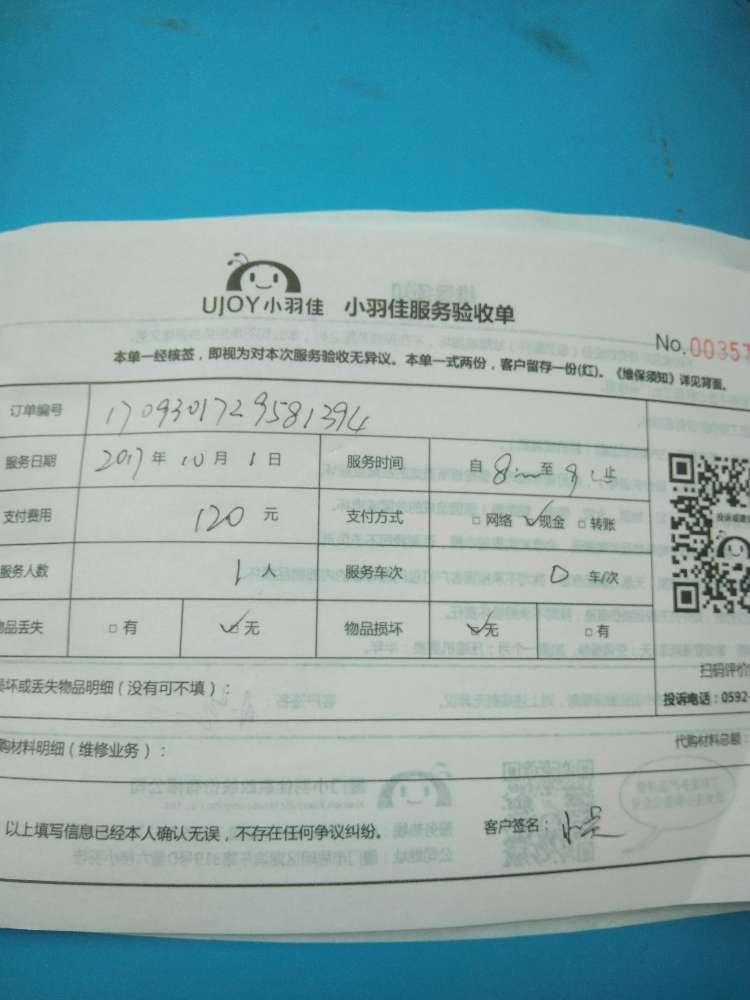 UJOY小羽佳 小羽佳服务验收单
No.00357
本单一经核签，即视为对本次服务验收无异议。本单一式两份，客户留存一份(红)。《维保须知》详见背面。
订单编号 1709301729581394
服务日期 2017年10月1日 服务时间 自8:00至9:止
支付费用 120元 支付方式 □网络 ☑现金 □转账
服务人数 1人 服务车次 0车/次
物品丢失 □有 ☑无 物品损坏 ☑无 □有
损坏或丢失物品明细（没有可不填）：
扫码评价
投诉电话：0592-
购材料明细（维修业务）：
代购材料总额：
以上填写信息已经本人确认无误，不存在任何争议纠纷。
客户签名：